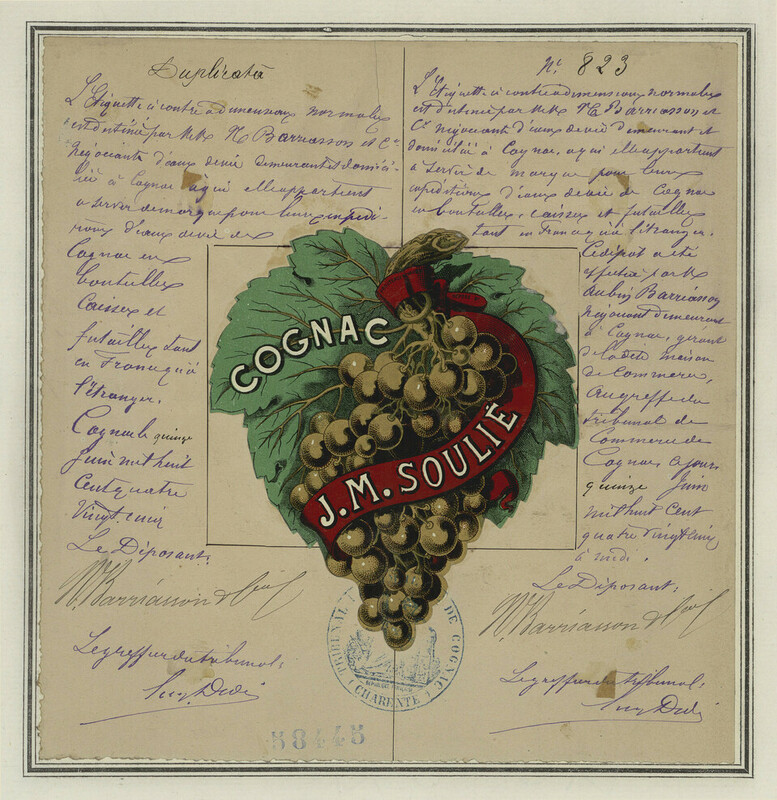 Duplicata
L'Etiquette ci contre a dimensions normales
est destinée par MM. Barriasson et Cie
Négociants d'eaux de vie demeurant et domici-
lié à Cognac à qui elle appartient
a servir de marque pour leurs expédi-
tions d'eaux de vie de
Cognac en
bouteilles
Caisses et
futailles tant
en France qu'à
l'étranger.
Cognac le quinze
Juin mil huit
Cent quatre
Vingt
Le Déposant:
Barriasson &
Le greffier du tribunal:
N° 823
L'Etiquette ci contre a dimensions normales
est destinée par MM. Barriasson et
Cie négociant d'eaux de vie demeurant et
domicilié à Cognac, a qui elle appartient
a servir de marque pour leurs
expéditions d'eaux de vie de Cognac
en bouteilles, caisses et futailles
tant en France qu'à l'étranger.
Ce dépôt a été
effectué par M
Aubin Barriasson
Négociant demeurant
à Cognac, gérant
de la dite maison
de Commerce,
Au greffe du
tribunal de
Commerce de
Cognac ce jour
quinze Juin
mil huit Cent
quatre vingt
à midi.
Le Déposant:
Barriasson &
Le greffier du tribunal:
COGNAC
J.M. SOULIÉ
TRIBUNAL DE COGNAC
(CHARENTE)
58445